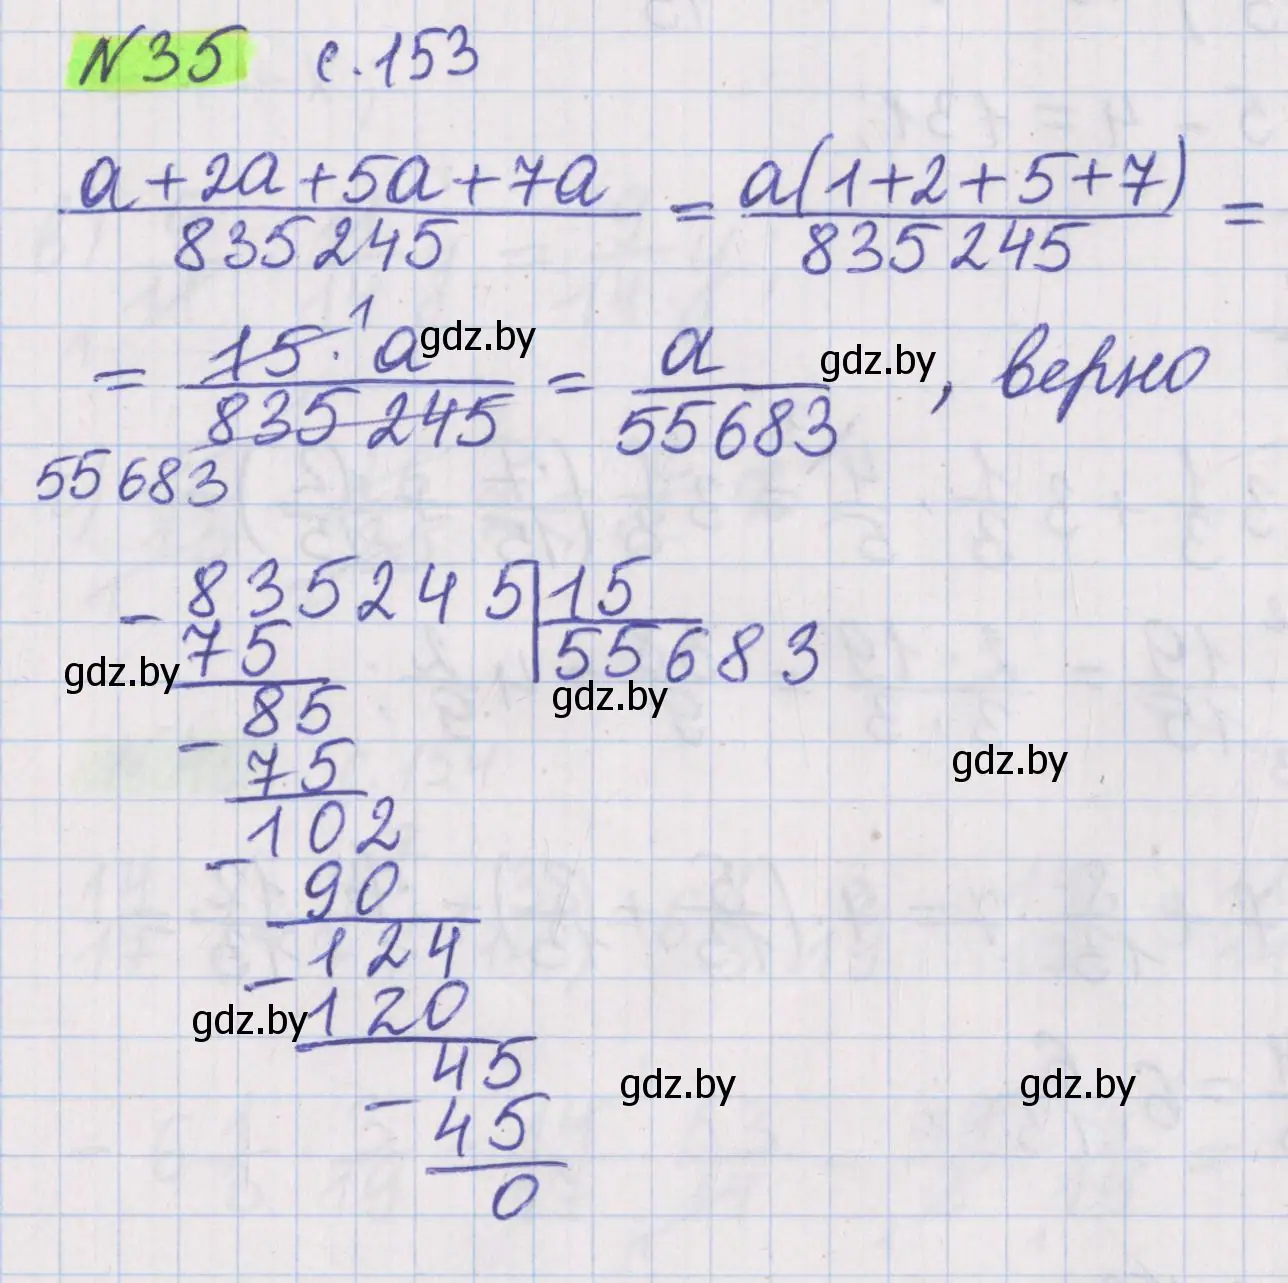 №35 с. 153
a+2a+5a+7a / 835245 = a(1+2+5+7) / 835245 =
= 15 · a / 835245 = a / 55683, верно
1
55683
gdz.by gdz.by
- 835245 | 15
75 | 55683
gdz.by gdz.by
- 85
75
gdz.by
- 102
90
- 124
120
gdz.by
- 45
45
gdz.by gdz.by
0